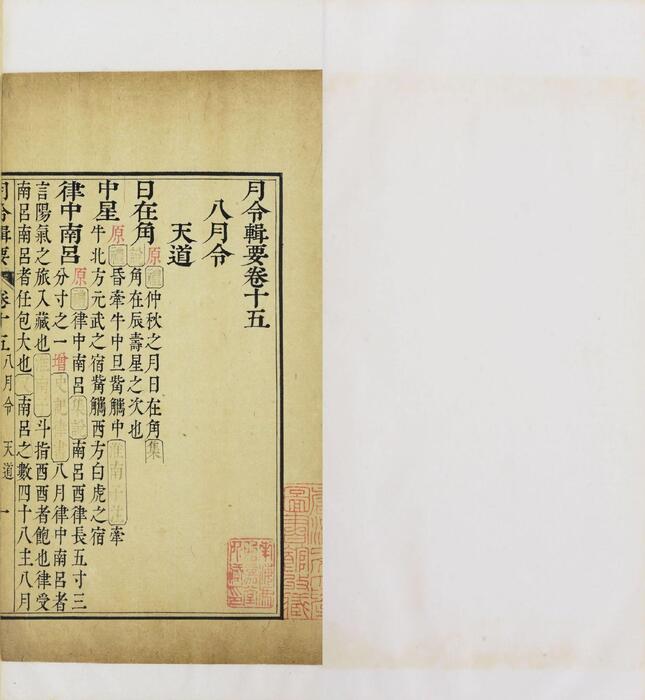 月令輯要卷十五
八月令
天道
日在角 原 禮 仲秋之月日在角 集
說 角在辰壽星之次也
中星 原 禮 昏牽牛中旦觜觿中 淮南子注 牽
牛北方元武之宿觜觿西方白虎之宿
律中南呂 原 禮 律中南呂 集說 南呂酉律長五寸三
分寸之一 增 史記律書 八月律中南呂南呂者
言陽氣之旅入藏也 淮南子 斗指酉酉者飽也律受
南呂南呂者任包大也 又 南呂之數四十八主八月
月令輯要 卷十五 八月令 天道 一